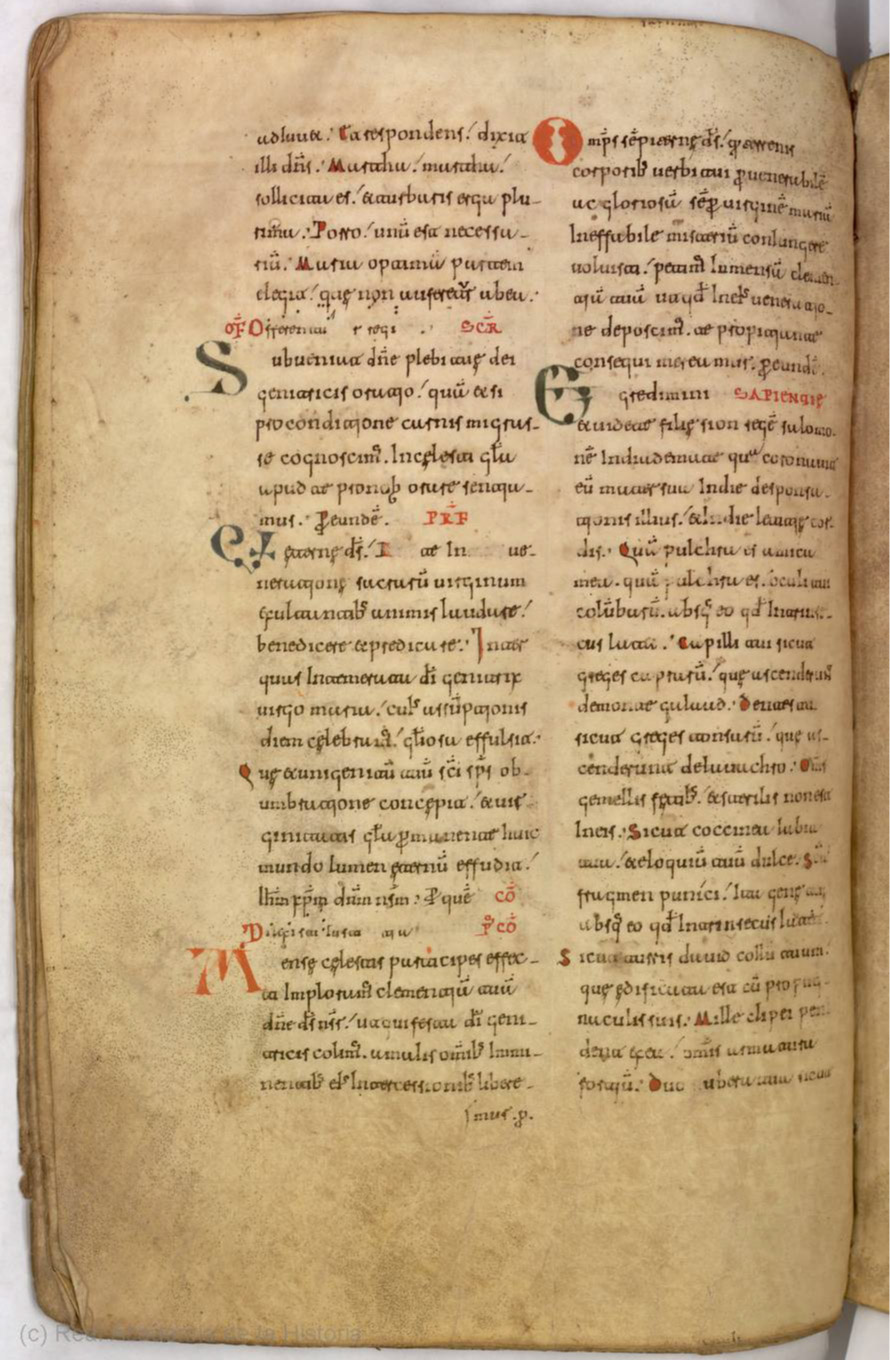 adiuuet. Et respondens dixit
illi dñs. Martha martha
sollicita es et turbaris erga plu-
rima. Porro unũ est necessa-
riũ. Maria optimã partem
elegit quę non auferetur ab ea.
OF Offerentur regi SCR
Subueniat dñe plebi tuę dei
genitricis oratio quã etsi
pro conditione carnis migras-
se cognoscim̃. In celesti gła
apud te pro nob orare sentia-
mus. Per eundẽ. PRF
Et ęterne ds̃. te In ue-
neratione sacrarũ uirginum
exultantib animis laudare
benedicere et predicare. Inter
quas Intemerata di genitrix
uirgo maria cuĩ assũptionis
diem celebram̃ gloriosa effulsit.
Quę et unigenitũ tuũ sc̃i sp̃s ob-
umbratione concepit et uir-
ginitatis gła permanente huic
mundo lumen ęternũ effudit
Ihm xp̃m dñm nrm̃. Per quẽ CÕ
Dilexisti iusti PCÕ
Mensę celestis participes effec-
ti Imploram̃ clementiã tuã
dñe ds̃ nr̃ ut qui festa di geni-
tricis colim̃. a malis om̃ib Immi-
nentib eĩs Intercessionib libere-
mus. p.
Omp̃s sẽpiterne ds̃ qui terrenis
corporib uerbi tui per uenerabilẽ
ac gloriosã sẽper uirginẽ mariã
Ineffabile misteriũ coniungere
uoluisti petim̃ Inmensã clemen-
tiã tuã ut qd̃ In eĩs ueneratio-
ne deposcim̃. te propitiante
consequi mereamur. Per eundẽ.
Egredimini SAPIENTIE
et uidete filię sion regẽ salomo-
nẽ In diademate quo coronauit
eũ mater sua In die desponsa-
tionis illius et In die letitię cor-
dis. Quã pulchra es amica
mea. quã pulchra es. oculi tui
colũbarũ. absq eo qd̃ Intrinse-
cus latet. Capilli tui sicut
greges caprarũ quę ascenderunt
de monte galaad. Dentes tui
sicut greges tonsarũ quę as-
cenderunt de lauachro. Om̃s
gemellis fętib. et sterilis non est
In eis. Sicut coccinea labia
tua et eloquiũ tuũ dulce. Sic̃
fragmen punici Ita genę tuę
absq eo qd̃ Intrinsecus latet
Sicut turris dauid collũ tuum
quę ędificata est cũ propug-
naculis suis. Mille clipei pen-
dent ex ea om̃is armatura
fortiũ. Duo ubera tua sicut